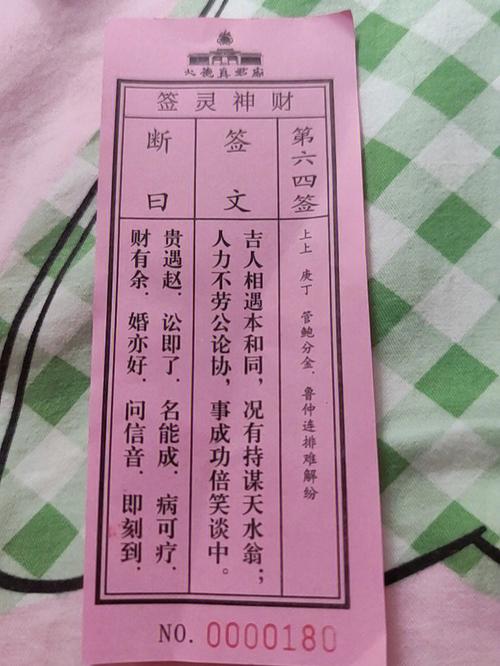 火德真君廟
财神灵签
第六四签
上上 庚丁 管鲍分金．鲁仲连排难解纷
签文
吉人相遇本和同，况有持谋天水翁；
人力不劳公论协，事成功倍笑谈中。
断曰
贵遇赵．讼即了．名能成．病可疗．
财有余．婚亦好．问信音．即刻到．
NO. 0000180